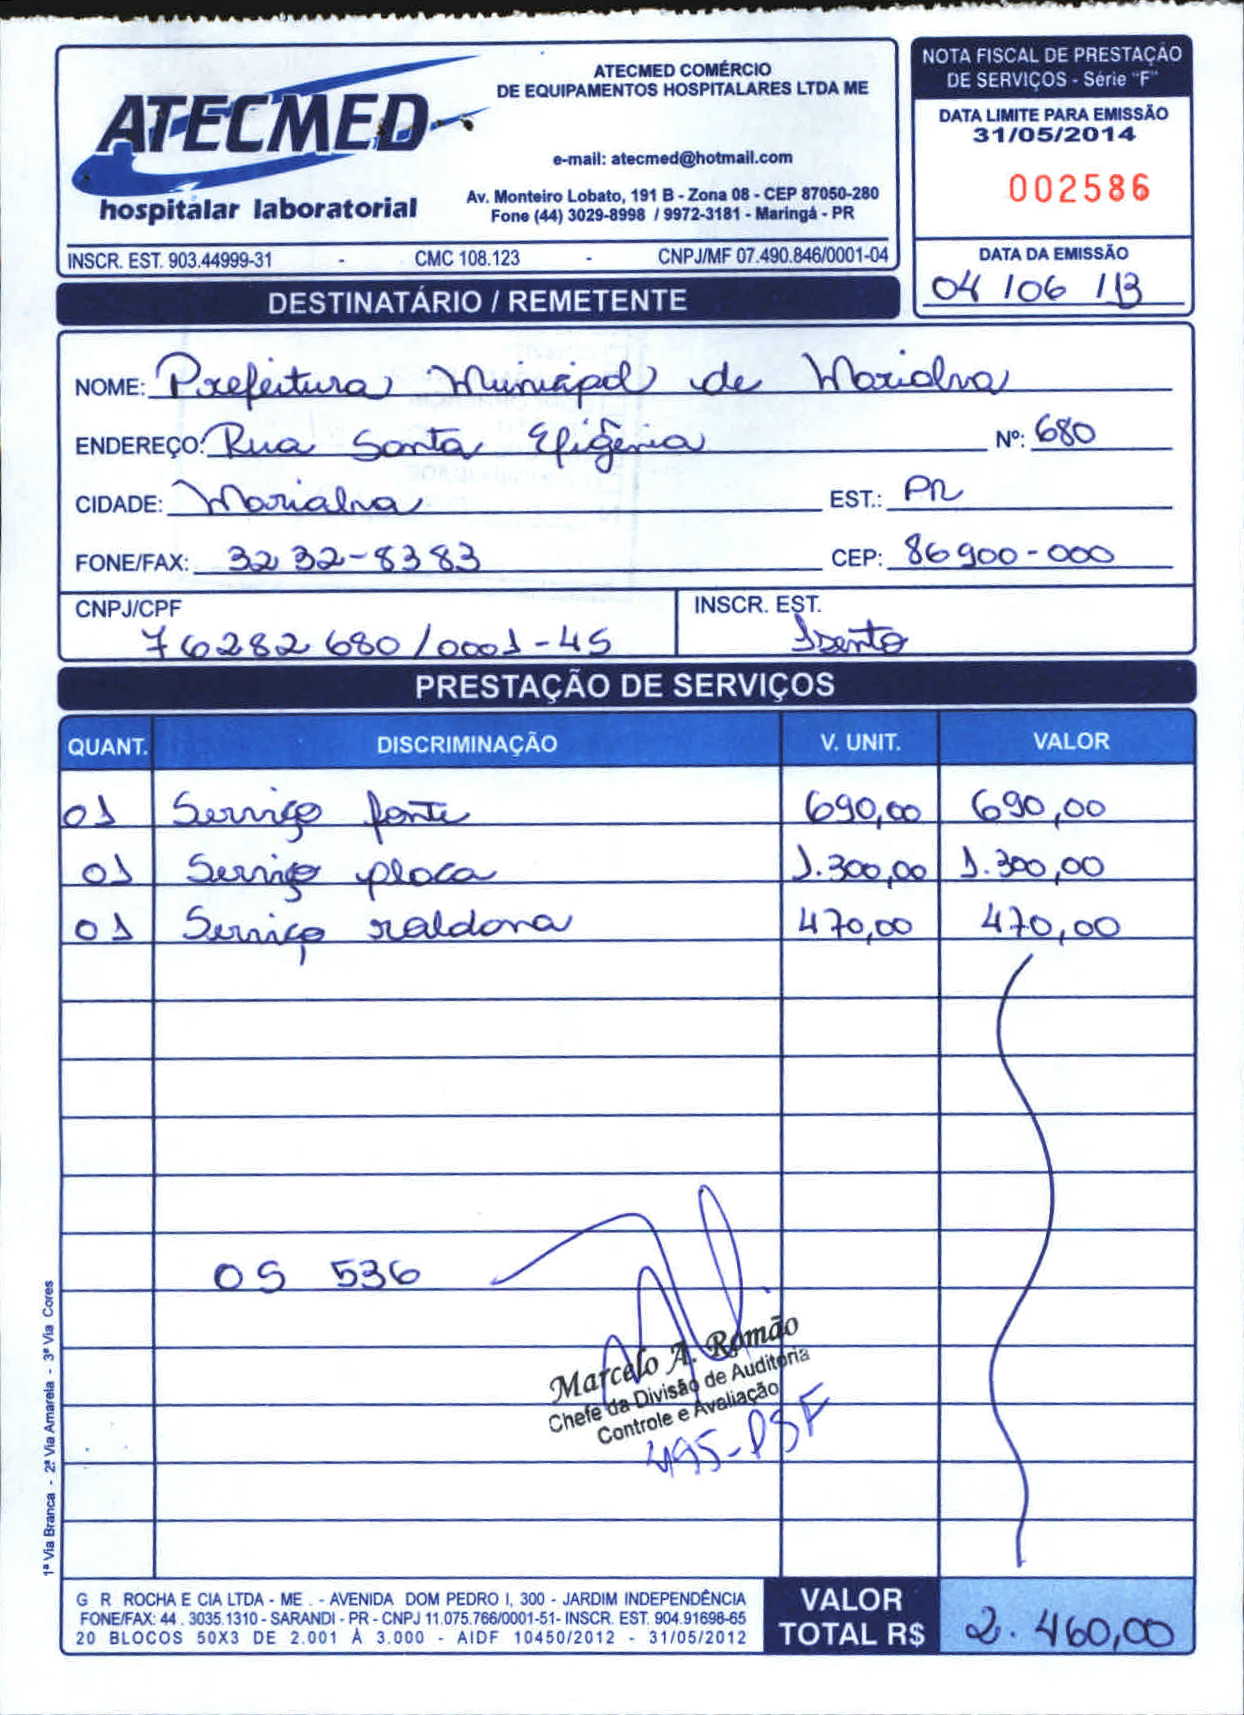 ATECMED
hospitalar laboratorial
ATECMED COMÉRCIO
DE EQUIPAMENTOS HOSPITALARES LTDA ME
e-mail: atecmed@hotmail.com
Av. Monteiro Lobato, 191 B - Zona 08 - CEP 87050-280
Fone (44) 3029-8998 / 9972-3181 - Maringá - PR
INSCR. EST. 903.44999-31 - CMC 108.123 - CNPJ/MF 07.490.846/0001-04
NOTA FISCAL DE PRESTAÇÃO
DE SERVIÇOS - Série "F"
DATA LIMITE PARA EMISSÃO
31/05/2014
002586
DATA DA EMISSÃO
04/06/13
DESTINATÁRIO / REMETENTE
NOME: Prefeitura Municipal de Marialva
ENDEREÇO: Rua Santa Efigênia Nº: 680
CIDADE: Marialva EST.: PR
FONE/FAX: 3232-8383 CEP: 86900-000
CNPJ/CPF 76282680/0001-45 INSCR. EST. Isento
PRESTAÇÃO DE SERVIÇOS
QUANT. DISCRIMINAÇÃO V. UNIT. VALOR
01 Serviço fonte 690,00 690,00
01 Serviço placa 1.300,00 1.300,00
01 Serviço 470,00 470,00
OS 536
Marcelo A. Romão
Chefe da Divisão de Auditoria
Controle e Avaliação
495-PSF
1ª Via Branca - 2ª Via Amarela - 3ª Via Cores
G R ROCHA E CIA LTDA - ME . - AVENIDA DOM PEDRO I, 300 - JARDIM INDEPENDÊNCIA
FONE/FAX: 44 . 3035.1310 - SARANDI - PR - CNPJ 11.075.766/0001-51- INSCR. EST. 904.91698-65
20 BLOCOS 50X3 DE 2.001 À 3.000 - AIDF 10450/2012 - 31/05/2012
VALOR
TOTAL R$ 2.460,00